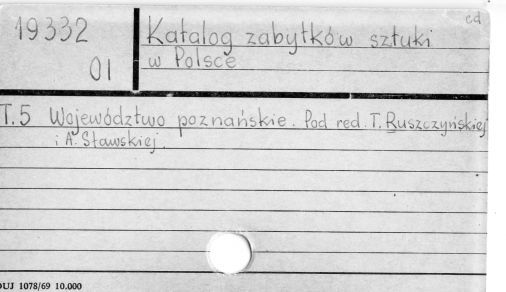 cd
19332
Katalog zabytków sztuki
w Polsce
01
T.5 Województwo poznańskie. Pod red. T. Ruszczyńskiej
i A. Sławskiej.
DUJ 1078/69 10.000